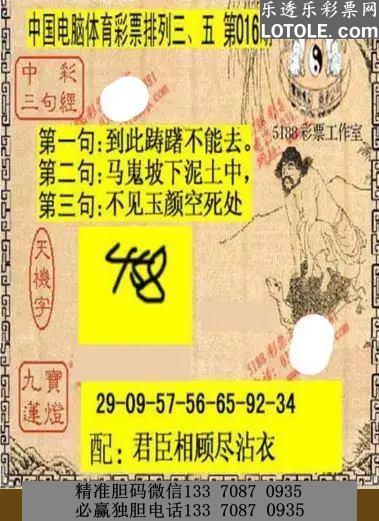 乐透乐彩票网
LOTOLE.COM
中国电脑体育彩票排列三、五 第016期
中彩
三句經
5188彩票工作室
第一句: 到此踌躇不能去。
第二句: 马嵬坡下泥土中,
第三句: 不见玉颜空死处
天機字
458
九寶蓮燈
29-09-57-56-65-92-34
配: 君臣相顾尽沾衣
精准胆码微信133 7087 0935
必赢独胆电话133 7087 0935